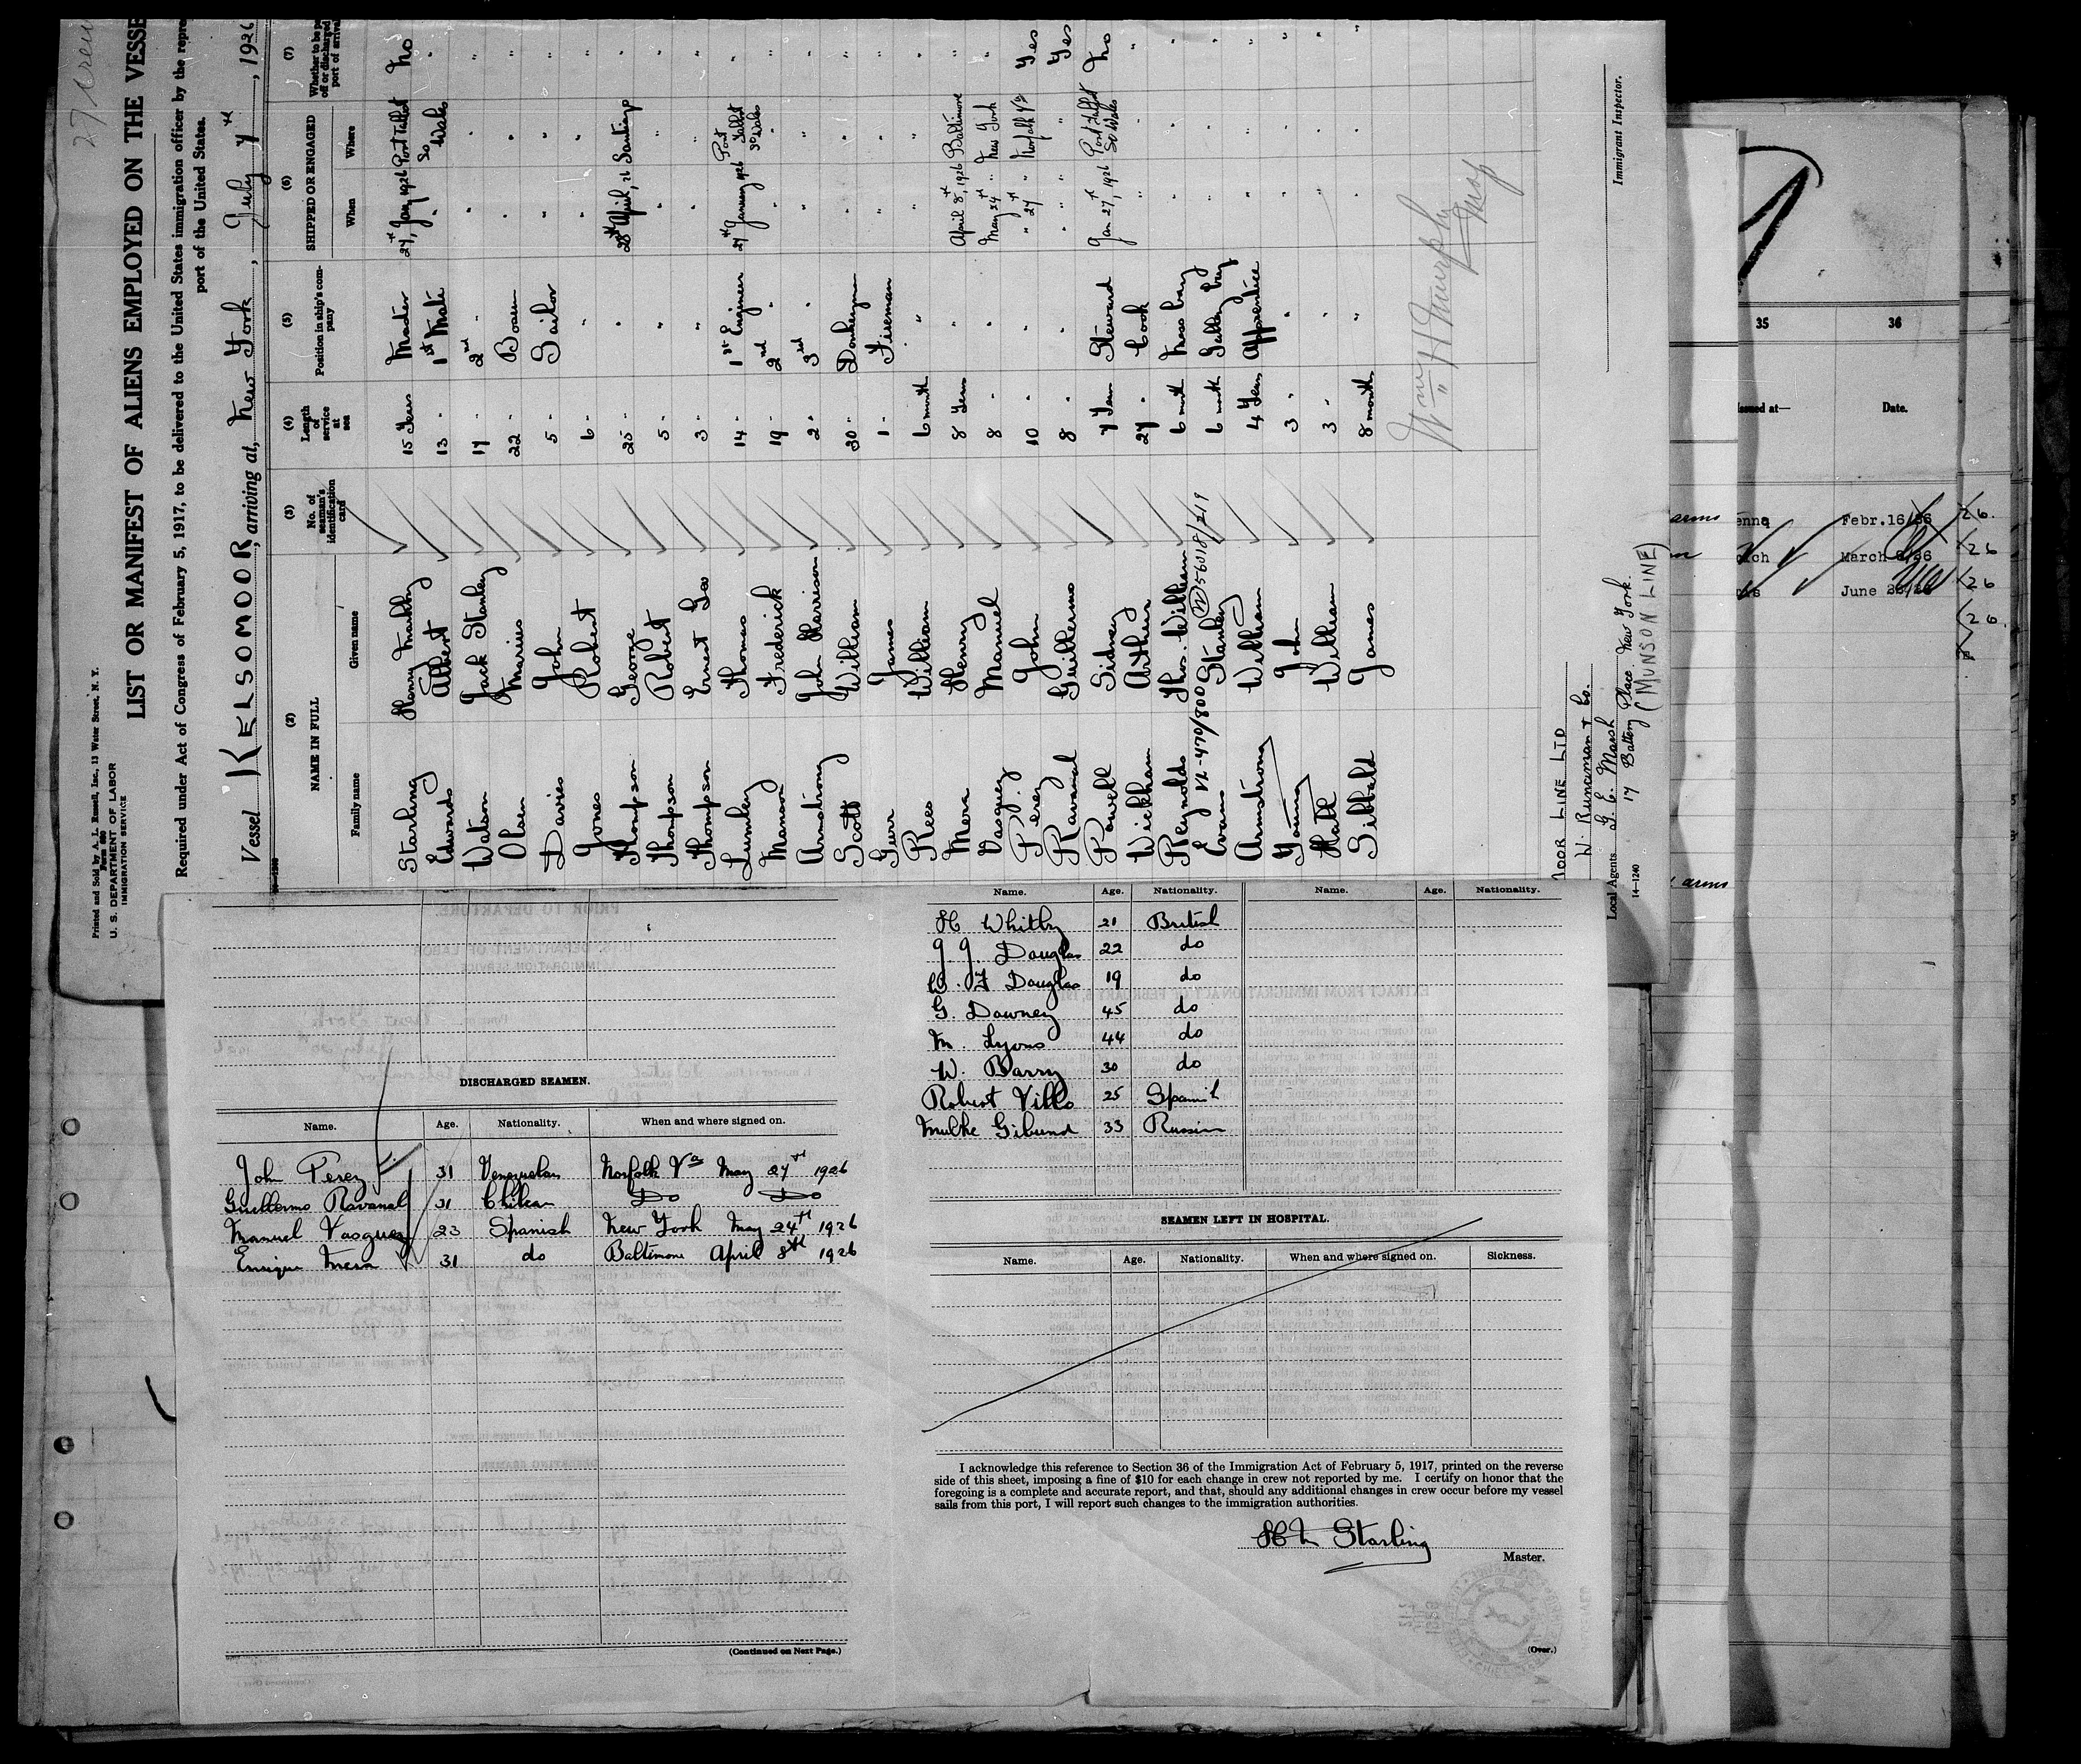 27 Crew
Printed and Sold by A. L. Russell, Inc., 13 Water Street, N. Y.
Form 680
U. S. DEPARTMENT OF LABOR
IMMIGRATION SERVICE
LIST OR MANIFEST OF ALIENS EMPLOYED ON THE VESSE
Required under Act of Congress of February 5, 1917, to be delivered to the United States immigration officer by the repre
port of the United States.
Vessel KELSOMOOR, arriving at, New York, July 7th, 1926
(2) (3) (4) (5) (6) (7)
NAME IN FULL No. of seaman's identification card Length of service at sea Position in ship's company SHIPPED OR ENGAGED Whether to be p off or discharged port of arrival
Family name Given name When Where
Starling Henry 15 Years Master 27th Jany 1926 Port Talbot So Wales No
Edwards Albert 13 " 1st Mate " "
Watson Jack Stanley 17 " 2nd " " " "
Olsen Marius 22 " Bosun " " "
Davies John 5 " Sailor " " "
Jones Robert 6 " " " " "
Thompson George 25 " " 28th April, 26 Santiago "
Thompson Robert 5 " " " " "
Thompson Ernest Geo 3 " " " " "
Lumley Thomas 14 " 1st Engineer 27th January 1926 Port Talbot So Wales "
Manson Frederick 19 " 2nd " " " "
Armstrong John Harrison 2 " 3rd " " " "
Scott William 30 " Donkeyman " " "
Gurr James 1 " Fireman " " "
Rees William 6 month " " " "
Mera Henry 8 Years " April 8th, 1926 Baltimore "
Vasquez Manuel 8 " " May 24th " New York "
Perez John 10 " " " 27th " Norfolk Va Yes
Ravanal Guillermo 8 " " " " Yes
Powell Sidney 7 Years Steward Jan 27, 1926 Port Talbot So Wales No
Wickham Arthur 27 " Cook " " "
Reynolds Thos. William 6 month Mess boy " " "
Evans Stanley 6 month Galley boy " " "
Armstrong William 4 Years Apprentice " " "
Young John 3 " " " " "
Hall William 3 " " " " "
Sibbald James 8 month " " " "
Wm H Murphy
Immigrant Inspector.
MOOR LINE LTD
W. Runciman & Co.
Local Agents G. E. Marsh
17 Battery Place. New York.
(MUNSON LINE)
14—1240
35 36
Issued at— Date.
Febr.16/26
March
June
arms
DISCHARGED SEAMEN.
Name. Age. Nationality. When and where signed on.
John Perez 31 Venezuelan Norfolk Va May 27th 1926
Guillermo Ravanal 31 Chilean Do Do
Manuel Vasquez 23 Spanish New York May 24th 1926
Enrique Mera 31 do Baltimore April 8th 1926
(Continued on Next Page.)
Name. Age. Nationality. Name. Age. Nationality.
H Whitby 21 British
J J Douglas 22 do
W. F Douglas 19 do
G. Downey 45 do
M. Lyons 44 do
W. Barry 30 do
Robert Villo 25 Spanish
Mulke Gibund 33 Russian
SEAMEN LEFT IN HOSPITAL.
Name. Age. Nationality. When and where signed on. Sickness.
I acknowledge this reference to Section 36 of the Immigration Act of February 5, 1917, printed on the reverse
side of this sheet, imposing a fine of $10 for each change in crew not reported by me. I certify on honor that the
foregoing is a complete and accurate report, and that, should any additional changes in crew occur before my vessel
sails from this port, I will report such changes to the immigration authorities.
H M Starling
Master.
(Over.)